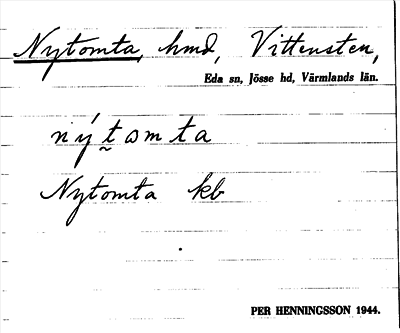 Nytomta, hmd, Vittensten,
Eda sn, Jösse hd, Värmlands län.
nýt̰ωmta
Nytomta kb
PER HENNINGSSON 1944.